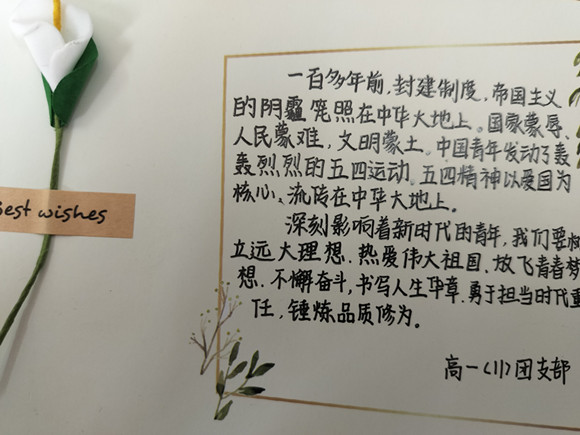 Best wishes
一百多年前，封建制度，帝国主义
的阴霾笼照在中华大地上。国家蒙辱、
人民蒙难，文明蒙土。中国青年发动了轰
轰烈烈的五四运动。五四精神以爱国为
核心、流淌在中华大地上。
深刻影响着新时代的青年，我们要树
立远大理想、热爱伟大祖国、放飞青春梦
想、不懈奋斗，书写人生华章、勇于担当时代重
任，锤炼品质修为。
高一(11)团支部